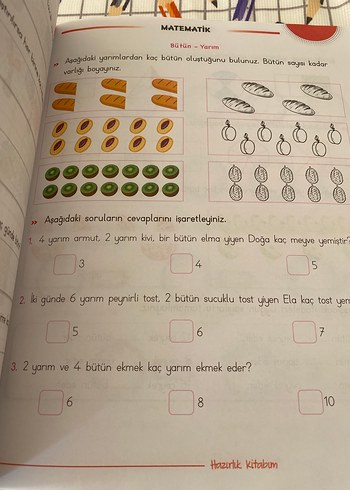 MATEMATİK
Bütün - Yarım
» Aşağıdaki yarımlardan kaç bütün oluştuğunu bulunuz. Bütün sayısı kadar
varlığı boyayınız.
» Aşağıdaki soruların cevaplarını işaretleyiniz.
1. 4 yarım armut, 2 yarım kivi, bir bütün elma yiyen Doğa kaç meyve yemiştir?
3 4 5
2. İki günde 6 yarım peynirli tost, 2 bütün sucuklu tost yiyen Ela kaç tost
5 6 7
3. 2 yarım ve 4 bütün ekmek kaç yarım ekmek eder?
6 8 10
Hazırlık Kitabım